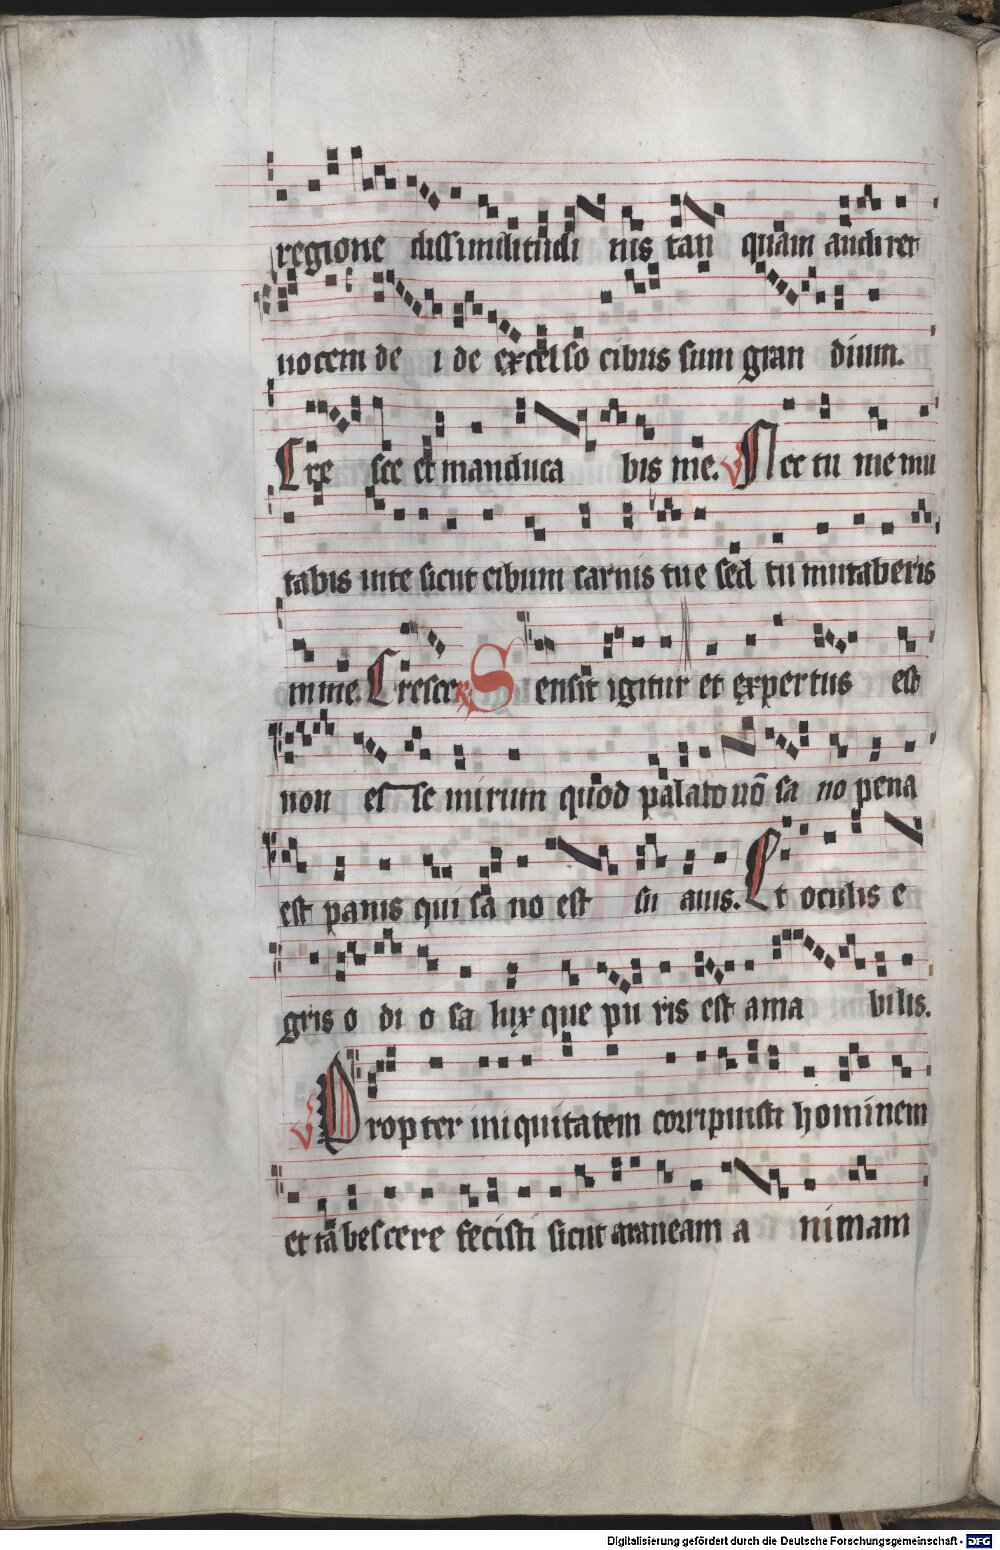 regione dissimilitudi nis tan quam audirer
uocem de i de excelso cibus sum gran dium.
Cre sce et manduca bis me. V Nec tu me mu
tabis inte sicut cibum carnis tue sed tu mutaberis
inme. Cresce R Sensit igitur et expertus est
non es se mirum quod palato nō sa no pena
est panis qui sa no est su auis. Et oculis e
gris o di o sa lux que pu ris est ama bilis.
V Propter iniquitatem corripuisti hominem
et tabescere fecisti sicut araneam a nimam
Digitalisierung gefördert durch die Deutsche Forschungsgemeinschaft - DFG